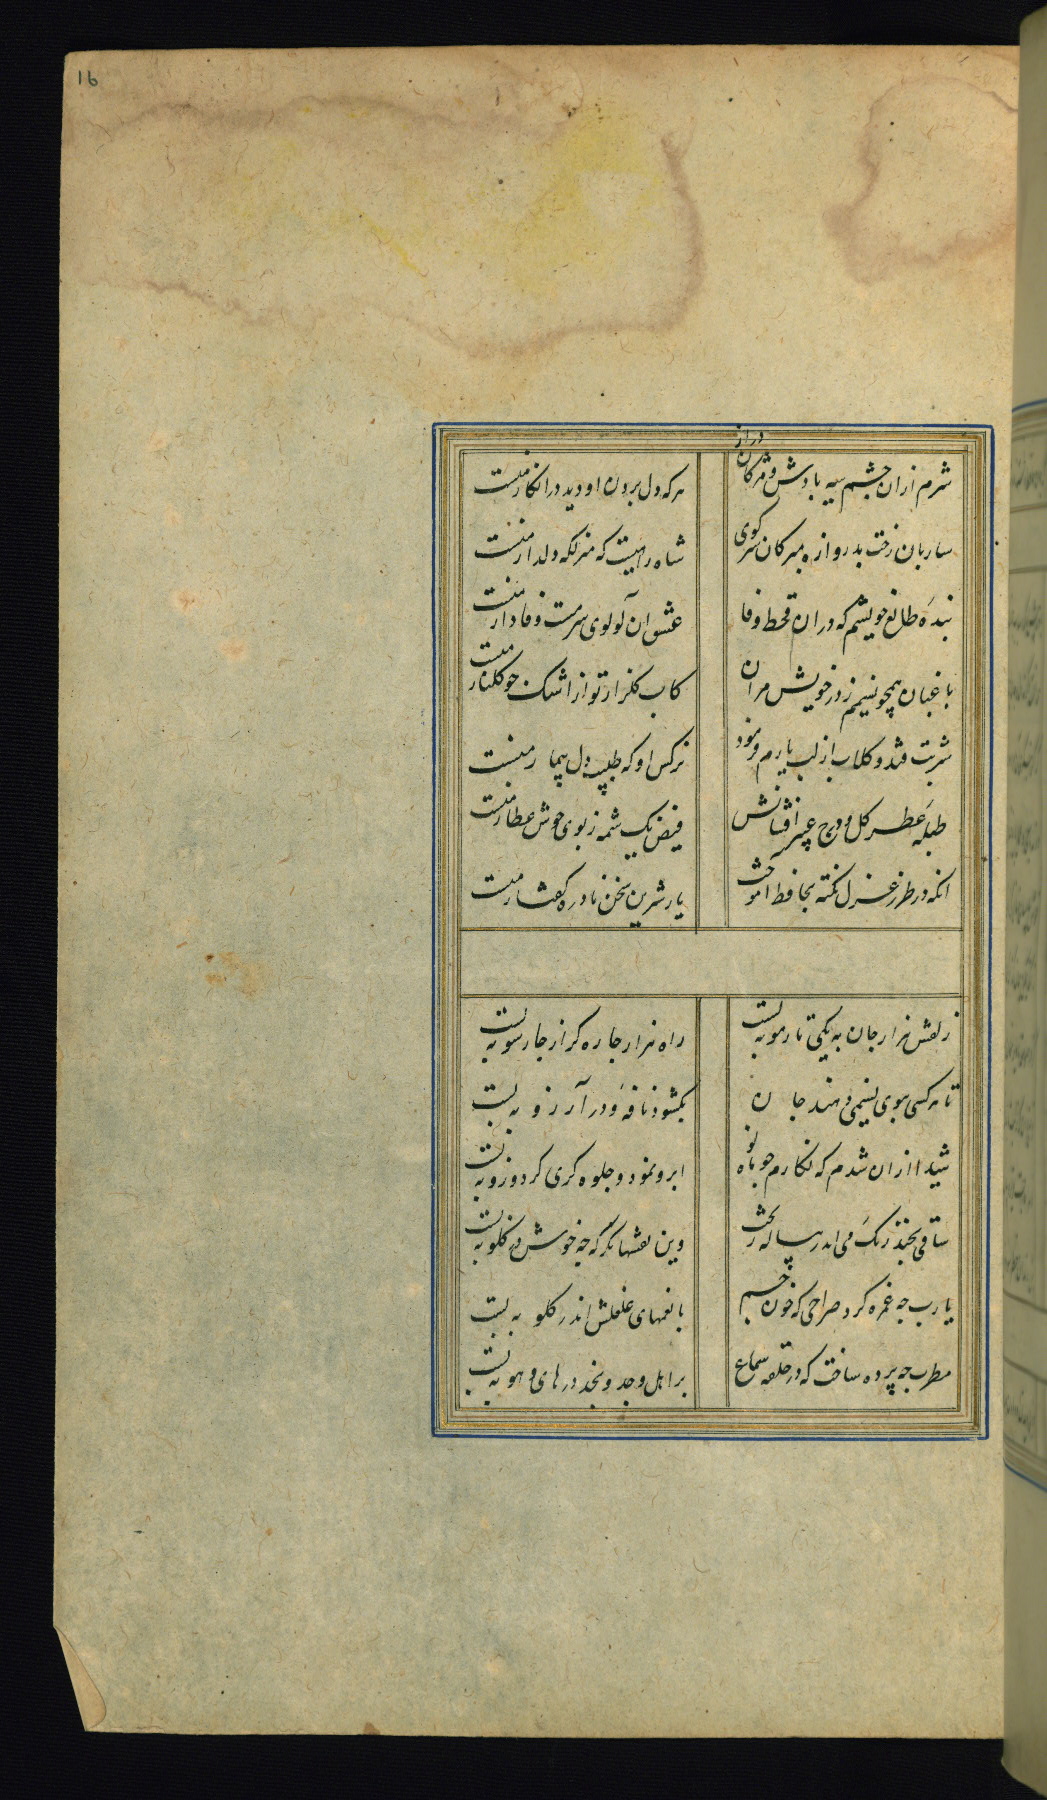 16
شرم ازان چشم سیه بادش و مژکان دراز
هرکه دل بردن او دید در انکار منست
ساربان رخت بدروازه مبر کان سر کوی
شاه راهیست که منزلکه دلدار منست
بندهٔ طالع خویشم که دران قحط وفا
عشق ان لولوی سرمست وفادار منست
باغبان همچو نسیمم ز در خویش مران
کاب کلزار تو از اشک جو کلنار منست
شربت قند و کلاب از لب یارم فرمود
نرکس او که طبیب دل بیمار منست
طبله عطر کل و درج عبیر افشانش
فیض یک شمه ز بوی خوش عطار منست
انکه در طرز غزل نکته بحافظ اموخت
یار شیرین سخن نادره کفتار منست
زلفش هزار جان به یکی تار مو به بست
راه هزار جاره کر از جار سو به بست
تا هر کسی ببوی نسیمی دهند جان
بکشود نافهٔ و در آرزو به بست
شیدا ازان شدم که نکارم جو ماه نو
ابرو نمود و جلوه کری کرد و رو به بست
ساقی بجند رنک می اندر پیاله ریخت
وین نقشها نکر که جه خوش در کلو به بست
یارب جه غمزه کرد صراحی که خون خم
با نغمهای غلغلش اندر کلو به بست
مطرب جه پرده ساخت که در حلقه سماع
بر اهل وجد و بخد در های و هو به بست